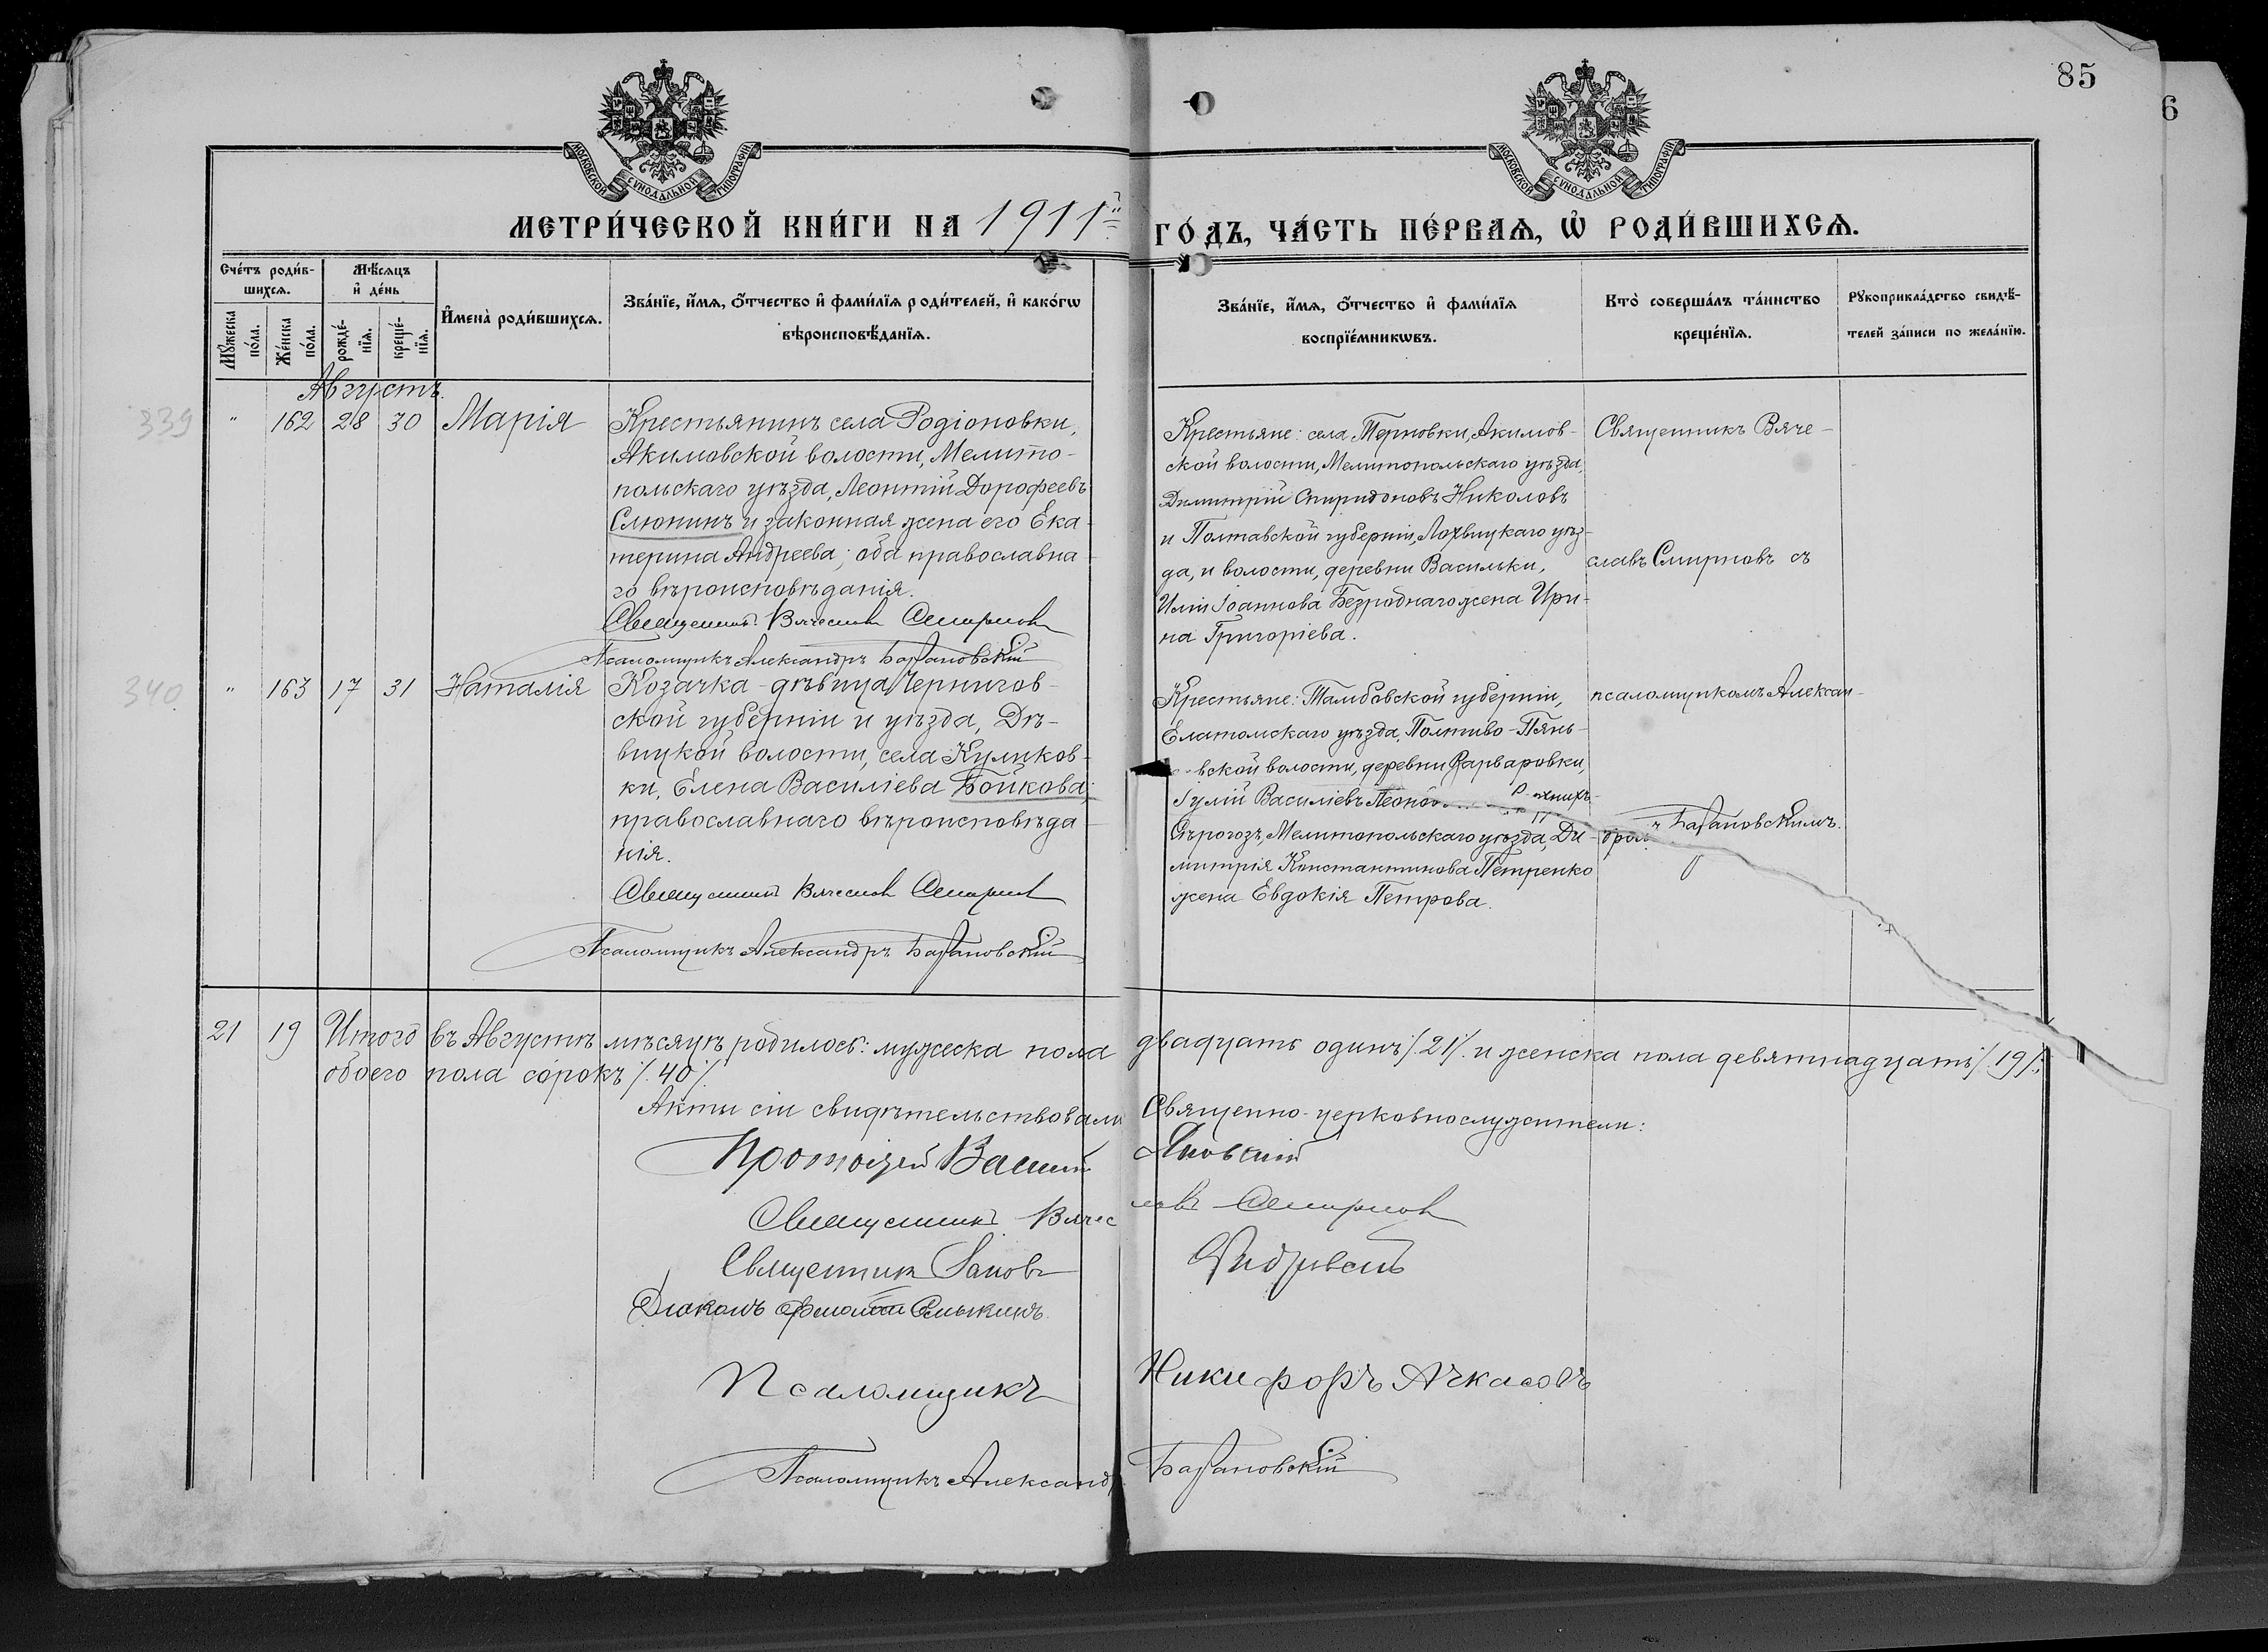 85
6
МОСКОВСКОЙ СѴНОДАЛЬНОЙ ТИПОГРАФІИ
МОСКОВСКОЙ СѴНОДАЛЬНОЙ ТИПОГРАФІИ
МЕТРИ́ЧЕСКОЙ КНИ́ГИ НА 1911й
ГО́ДЪ, ЧА́СТЬ ПЕ́РВАѦ, Ѡ҆ РОДИ́ВШИХСѦ.
Сче́тъ роди́в-
шихсѧ.
Мѣ́сѧцъ
и҆ де́нь
Мꙋ́жеска по́ла.
Же́нска по́ла.
рожде́-
нїѧ.
креще́-
нїѧ.
И҆мена̀ роди́вшихсѧ.
Зва́нїе, и҆́мѧ, ѻ҆́тчество и҆ фами́лїѧ роди́телей, и҆ како́гѡ
вѣроисповѣ́данїѧ.
Зва́нїе, и҆́мѧ, ѻ҆́тчество и҆ фами́лїѧ
воспрїе́мникѡвъ.
Кто̀ соверша́лъ та́инство
креще́нїѧ.
Рꙋкоприкла́дство свидѣ́-
телей за́писи по жела́нїю.
Августъ.
339
" 162 28 30 Марія
Крестьянинъ села Родіоновки,
Акимовской волости, Мелито-
польскаго уѣзда, Леонтій Дорофеевъ
Слюнинъ и законная жена его Ека-
терина Андреева; оба православна-
го вѣроисповѣданія.
Священникъ Вячеславъ Смирновъ
Псаломщикъ Александръ Барановскій
Крестьяне: села Терновки, Акимов-
ской волости, Мелитопольскаго уѣзда,
Димитрій Спиридоновъ Николовъ
и Полтавской губерніи, Лохвицкаго уѣз-
да, и волости, деревни Васильки,
Иліи Іоаннова Безроднаго жена Ири-
на Григоріева.
Священникъ Вяче-
славъ Смирновъ съ
340
" 163 17 31 Наталія
Козачка-дѣвица Чернигов-
ской губерніи и уѣзда, Дѣ-
вицкой волости, села Куликов-
ки, Елена Василіева Бойкова;
православнаго вѣроисповѣда-
нія.
Священникъ Вячеславъ Смирновъ
Псаломщикъ Александръ Барановскій
Крестьяне: Тамбовской губерніи,
Елатомскаго уѣзда, Полтиво-Пянь-
вской волости, деревни Варваровки,
Іулій Василіевъ
Сѣрогозъ, Мелитопольскаго уѣзда, Ди-
митрія Константинова Петренко
жена Евдокія Петрова.
псаломщикомъ Алексан-
дромъ Барановскимъ.
21 19 Итого въ Августѣ мѣсяцѣ родилось: мужеска пола двадцать одинъ /21/. и женска пола девятнадцать /19/,
обоего пола сорокъ /40/.
Акты сіи свидѣтельствовали Священно-церковнослужители:
Протоіерей Василій Яновскій
Священникъ Вячеславъ Смирновъ
Священникъ
Діаконъ
Псаломщикъ Никифоръ Ачкасовъ
Псаломщикъ Александръ Барановскій